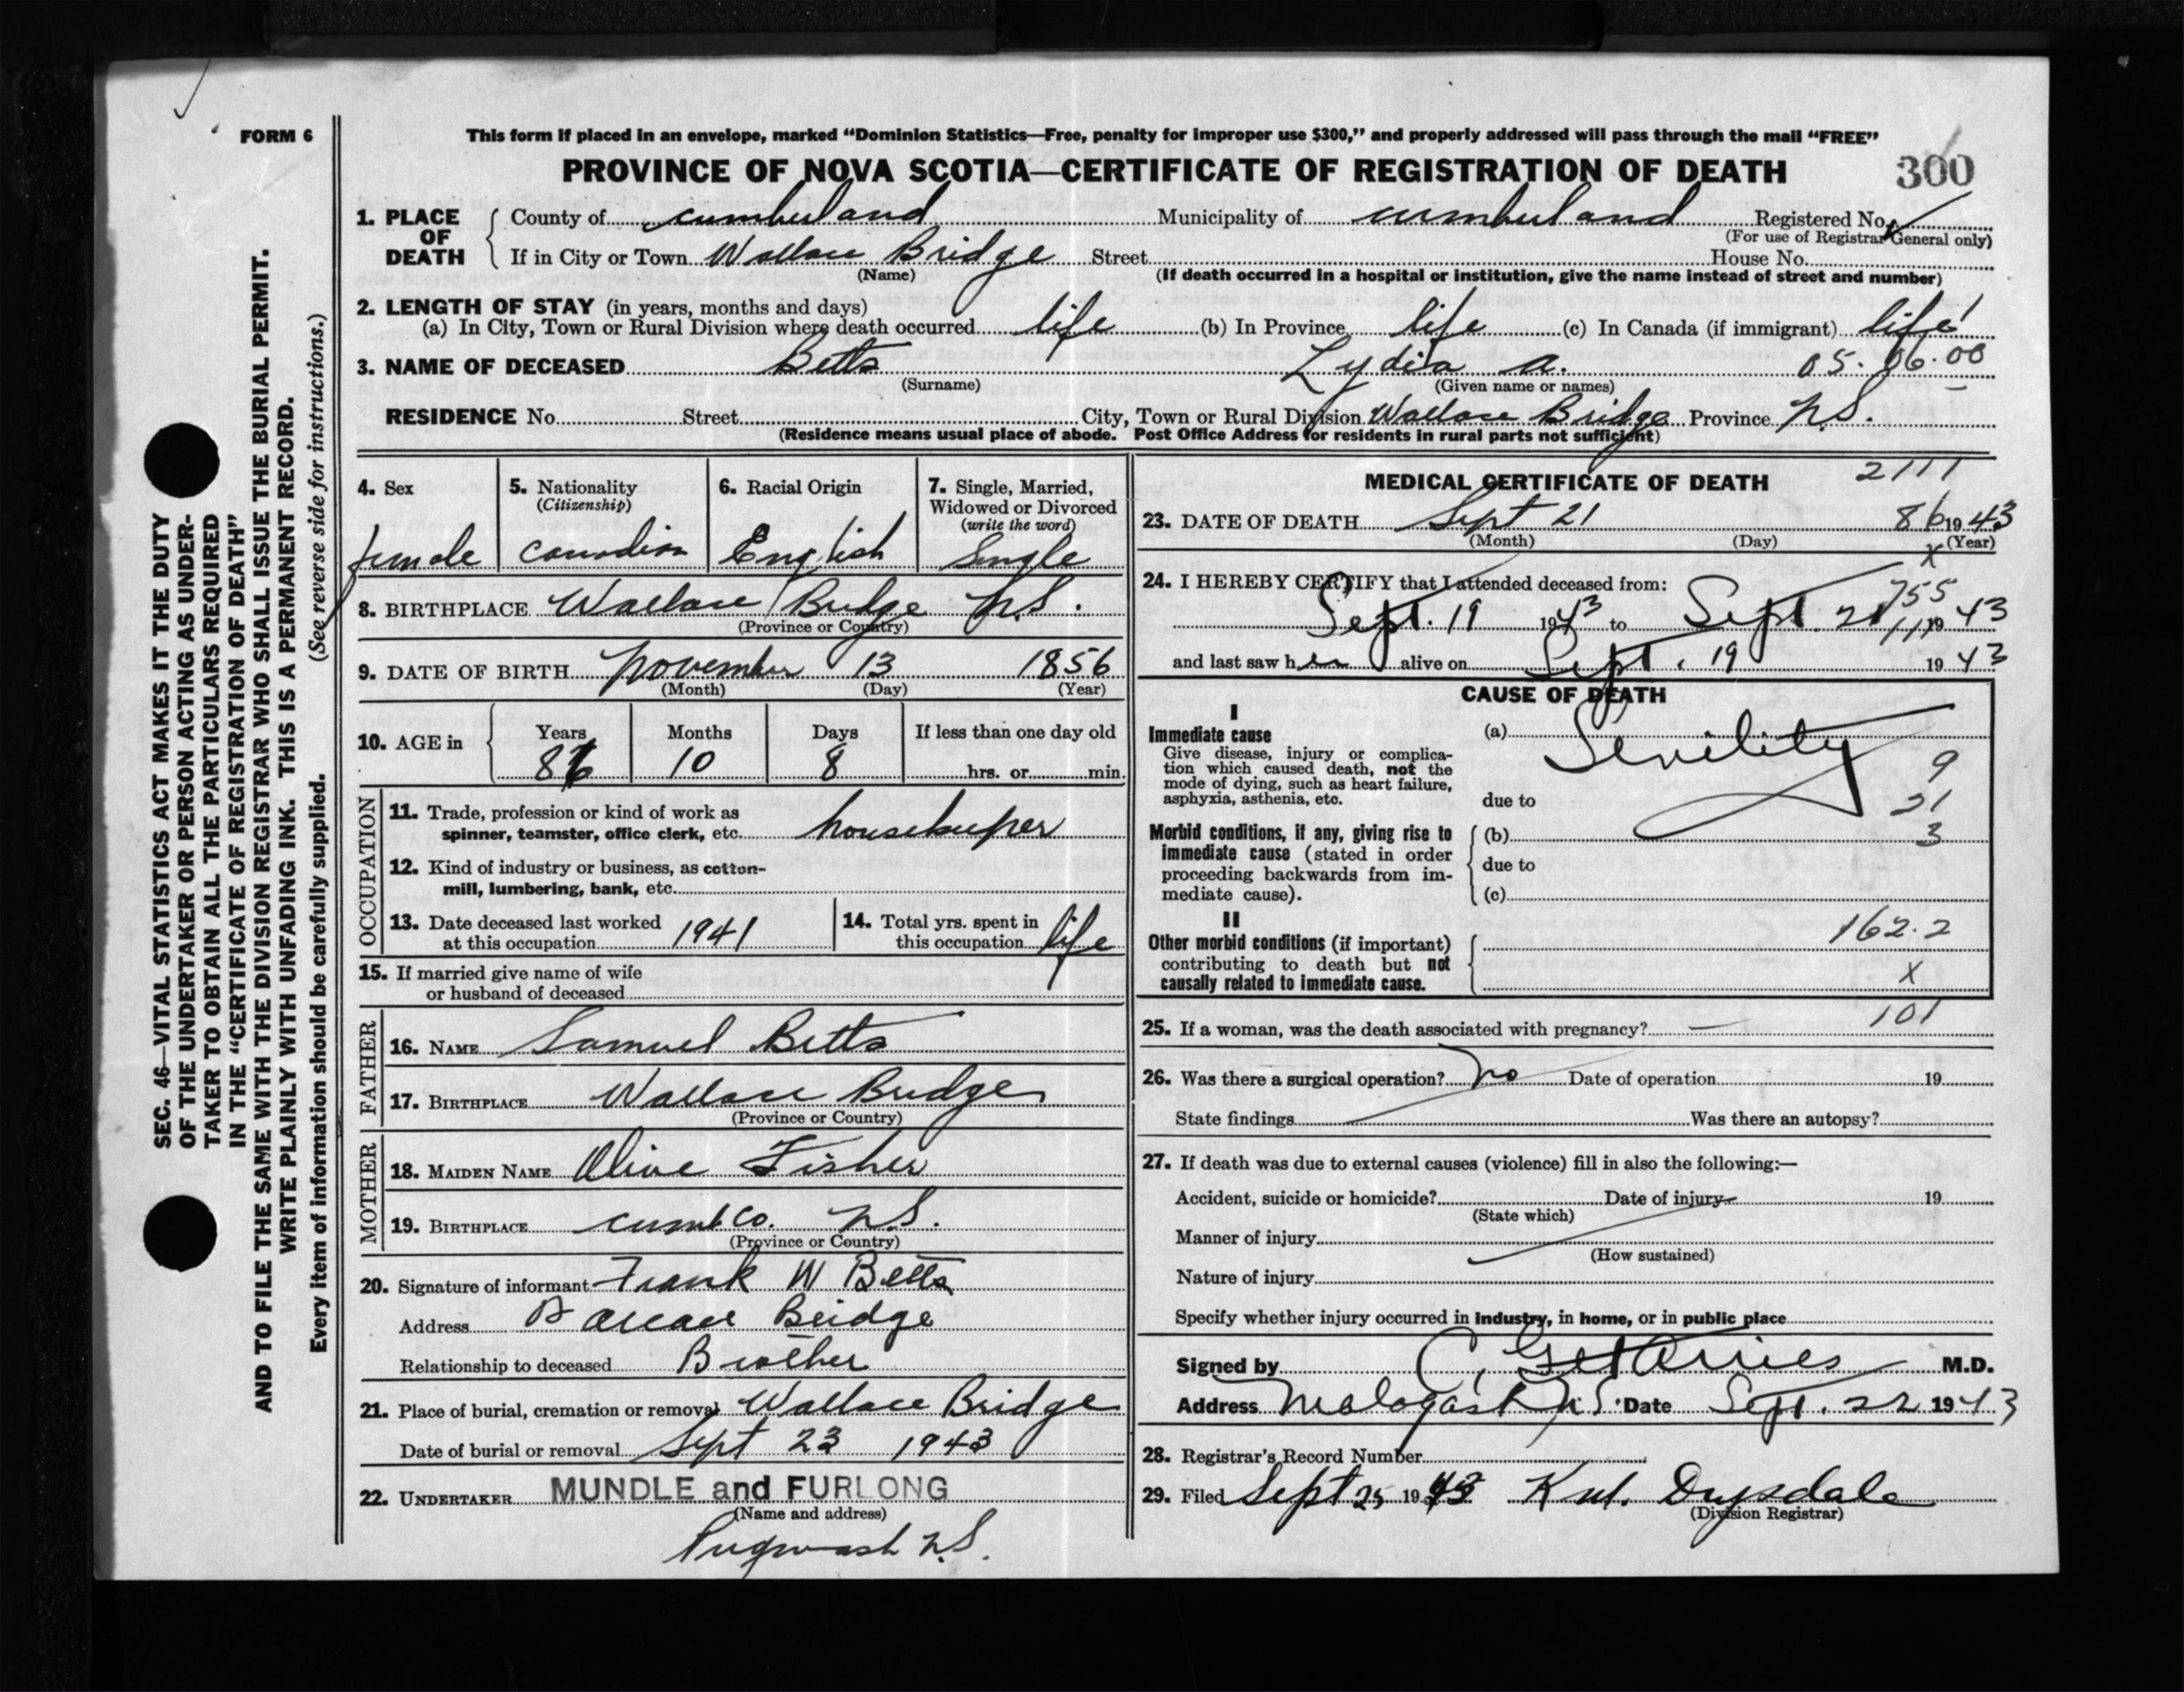 FORM 6
This form if placed in an envelope, marked “Dominion Statistics—Free, penalty for improper use $300,” and properly addressed will pass through the mail “FREE”
PROVINCE OF NOVA SCOTIA—CERTIFICATE OF REGISTRATION OF DEATH 300
1. PLACE OF DEATH County of cumberland Municipality of cumberland Registered No.
(For use of Registrar General only)
If in City or Town Wallace Bridge Street House No.
(Name) (If death occurred in a hospital or institution, give the name instead of street and number)
2. LENGTH OF STAY (in years, months and days)
(a) In City, Town or Rural Division where death occurred life (b) In Province life (c) In Canada (if immigrant) life
3. NAME OF DECEASED Betts Lydia a. 05.06.00
(Surname) (Given name or names)
RESIDENCE No. Street City, Town or Rural Division Wallace Bridge Province N.S.
(Residence means usual place of abode. Post Office Address for residents in rural parts not sufficient)
4. Sex 5. Nationality 6. Racial Origin 7. Single, Married,
(Citizenship) Widowed or Divorced
(write the word)
female Canadian English Single
8. BIRTHPLACE Wallace Bridge N.S.
(Province or Country)
9. DATE OF BIRTH November 13 1856
(Month) (Day) (Year)
10. AGE in Years Months Days If less than one day old
86 10 8 hrs. or min.
OCCUPATION
11. Trade, profession or kind of work as
spinner, teamster, office clerk, etc. housekeeper
12. Kind of industry or business, as cotton-
mill, lumbering, bank, etc.
13. Date deceased last worked
at this occupation 1941
14. Total yrs. spent in
this occupation life
15. If married give name of wife
or husband of deceased
FATHER
16. NAME Samuel Betts
17. BIRTHPLACE Wallace Bridge
(Province or Country)
MOTHER
18. MAIDEN NAME Olive Fisher
19. BIRTHPLACE Cumb Co. N.S.
(Province or Country)
20. Signature of informant Frank W Betts
Address Wallace Bridge
Relationship to deceased Brother
21. Place of burial, cremation or removal Wallace Bridge
Date of burial or removal Sept 23 1943
22. UNDERTAKER MUNDLE and FURLONG
(Name and address)
Pugwash N.S.
MEDICAL CERTIFICATE OF DEATH 2111
23. DATE OF DEATH Sept 21 86 1943
(Month) (Day) (Year)
x
24. I HEREBY CERTIFY that I attended deceased from:
755
Sept. 19 1943 to Sept. 21 1943
and last saw her alive on Sept. 19 1943
CAUSE OF DEATH
I
Immediate cause
Give disease, injury or complica-
tion which caused death, not the
mode of dying, such as heart failure,
asphyxia, asthenia, etc.
(a) Senility
9
due to 21
Morbid conditions, if any, giving rise to
immediate cause (stated in order
proceeding backwards from im-
mediate cause).
(b) 3
due to
(c)
II
Other morbid conditions (if important)
contributing to death but not
causally related to immediate cause.
162.2
x
101
25. If a woman, was the death associated with pregnancy? —
26. Was there a surgical operation? No Date of operation 19
State findings Was there an autopsy?
27. If death was due to external causes (violence) fill in also the following:—
Accident, suicide or homicide? Date of injury 19
(State which)
Manner of injury
(How sustained)
Nature of injury
Specify whether injury occurred in industry, in home, or in public place
Signed by C. M.D.
Address Malagash N.S. Date Sept. 22 1943
28. Registrar's Record Number
29. Filed Sept 25 1943 Drysdale
(Division Registrar)
SEC. 46—VITAL STATISTICS ACT MAKES IT THE DUTY
OF THE UNDERTAKER OR PERSON ACTING AS UNDER-
TAKER TO OBTAIN ALL THE PARTICULARS REQUIRED
IN THE “CERTIFICATE OF REGISTRATION OF DEATH”
AND TO FILE THE SAME WITH THE DIVISION REGISTRAR WHO SHALL ISSUE THE BURIAL PERMIT.
WRITE PLAINLY WITH UNFADING INK. THIS IS A PERMANENT RECORD.
Every item of information should be carefully supplied. (See reverse side for instructions.)